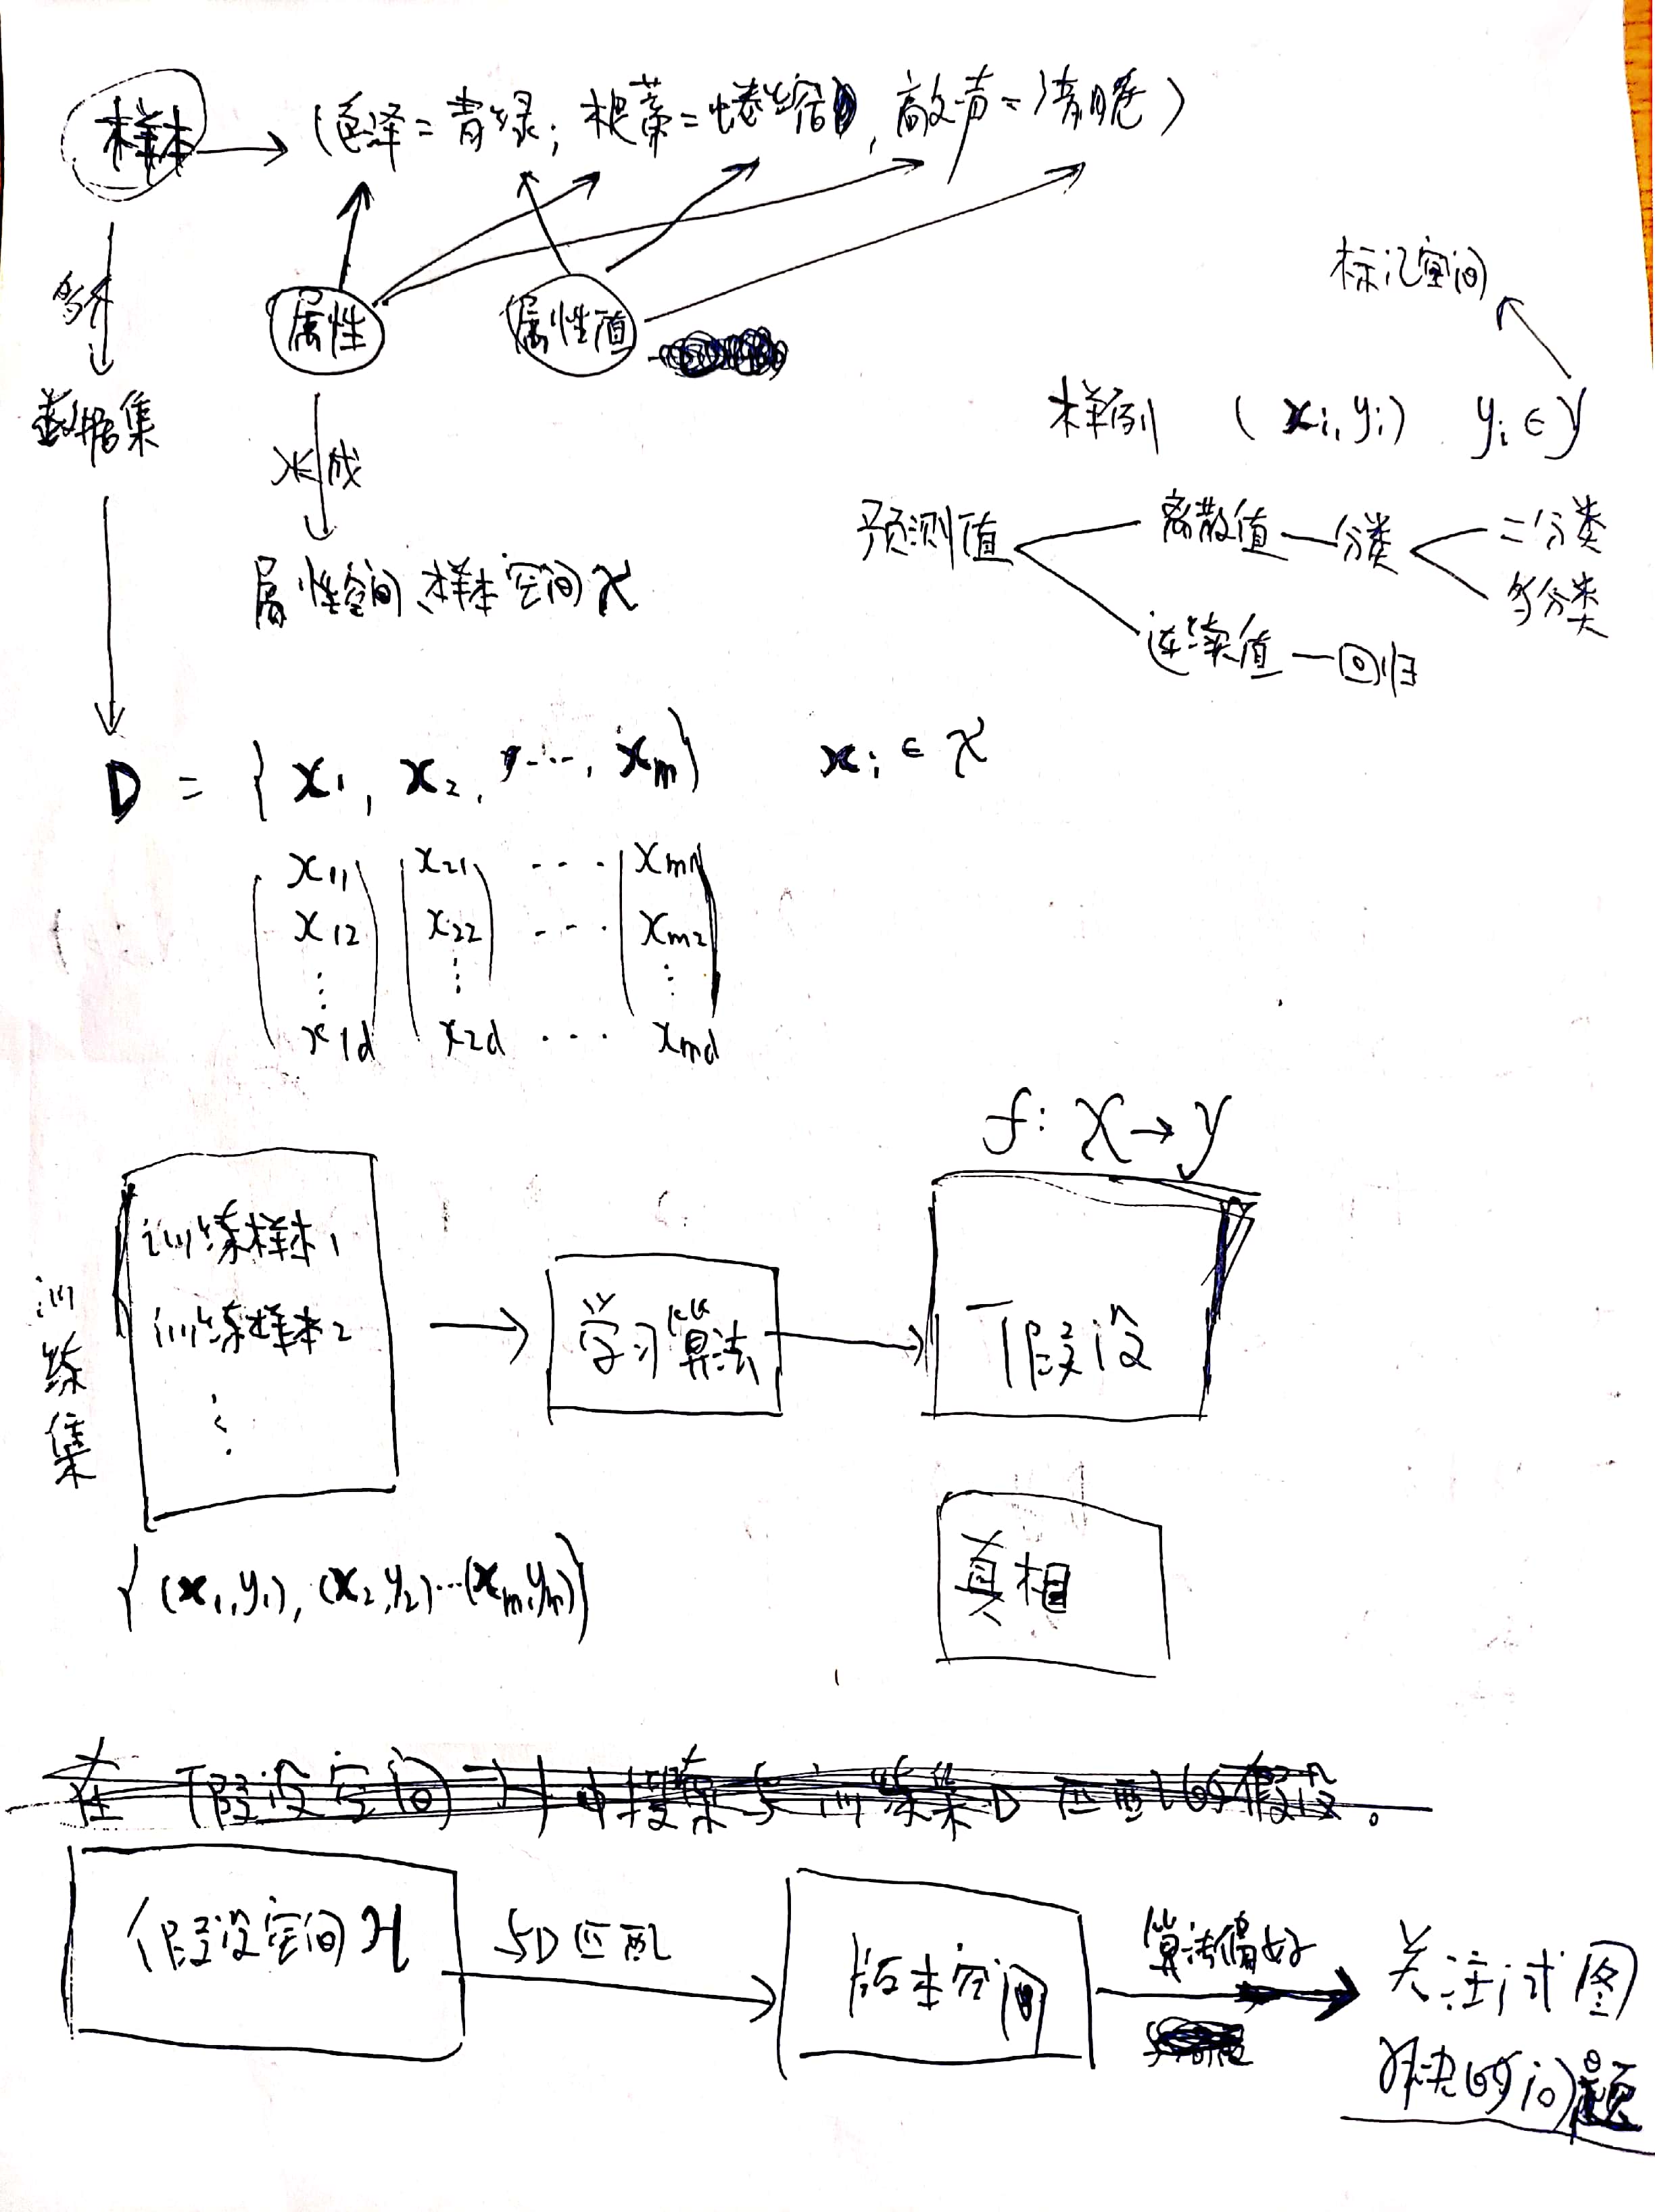 样本 → (色泽=青绿; 根蒂=蜷缩, 敲声=清脆)
多个
属性
属性值
标记空间
数据集
样例 (xi, yi) yi ∈ Y
张成
预测值
离散值 — 分类
二分类
多分类
属性空间、样本空间 X
连续值 — 回归
D = { x1, x2, ..., xm } xi ∈ X
x11 x21 ... xm1
x12 x22 ... xm2
⋮ ⋮ ⋮
x1d x2d ... xmd
f: X → Y
训练集
训练样本1
训练样本2
⋮
学习算法
假设
真相
{ (x1, y1), (x2, y2) ... (xm, ym) }
在假设空间 中搜索与训练集D匹配的假设。
假设空间 H
与D匹配
版本空间
算法偏好
关注试图
解决的问题